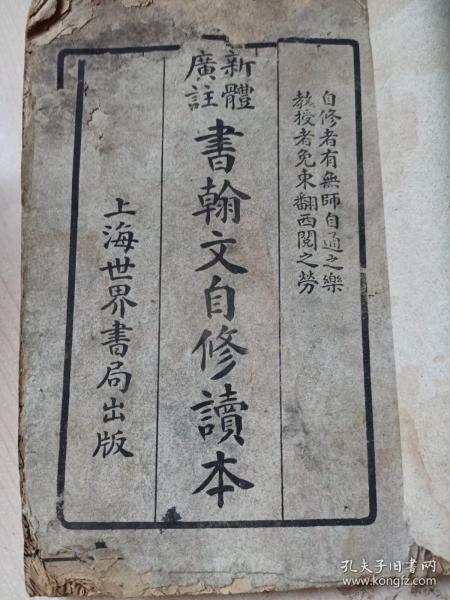 自修者有無師自通之樂
教授者免東翻西閱之勞
新體
廣註
書翰文自修讀本
上海世界書局出版
孔夫子旧书网
www.kongfz.com